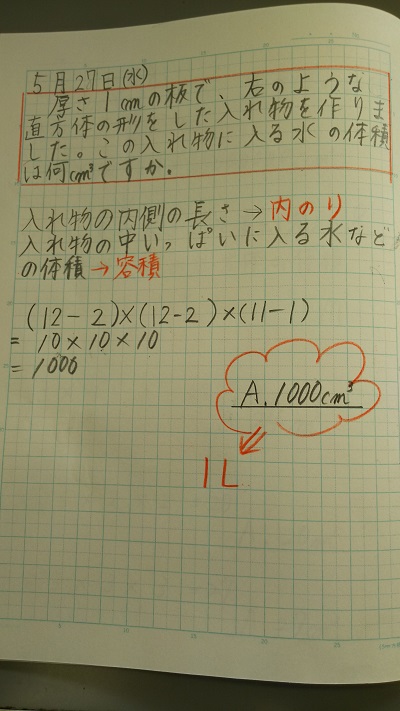 5月27日(水)
厚さ1cmの板で、右のような
直方体の形をした入れ物を作りま
した。この入れ物に入る水の体積
は何cm³ですか。
入れ物の内側の長さ→内のり
入れ物の中いっぱいに入る水など
の体積→容積
(12-2)×(12-2)×(11-1)
= 10×10×10
= 1000
A.1000cm³
1L